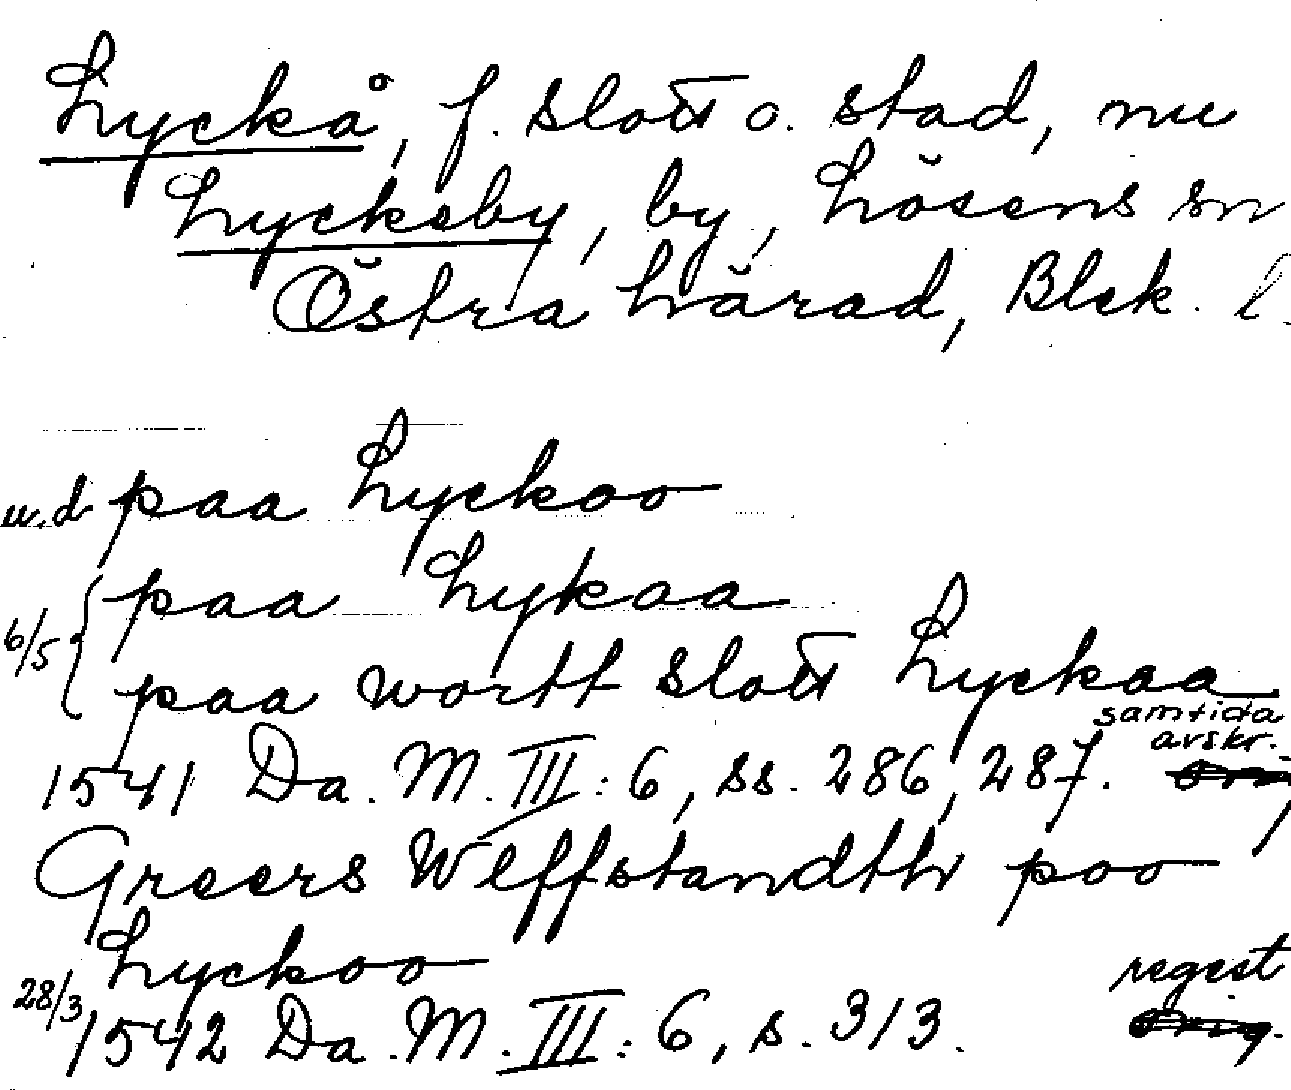 Lyckå, f. slott o. stad, nu
Lyckeby, by, Lösens sn
Östra härad, Blek. l.
u.d. paa Lyckoo
6/5 { paa Lykaa
paa wortt slott Lyckaa
1541 Da. M. III: 6, ss. 286, 287. samtida avskr.
Greers Wlffstandth poo
Lyckoo
28/3 1542 Da. M. III: 6, s. 313. regest